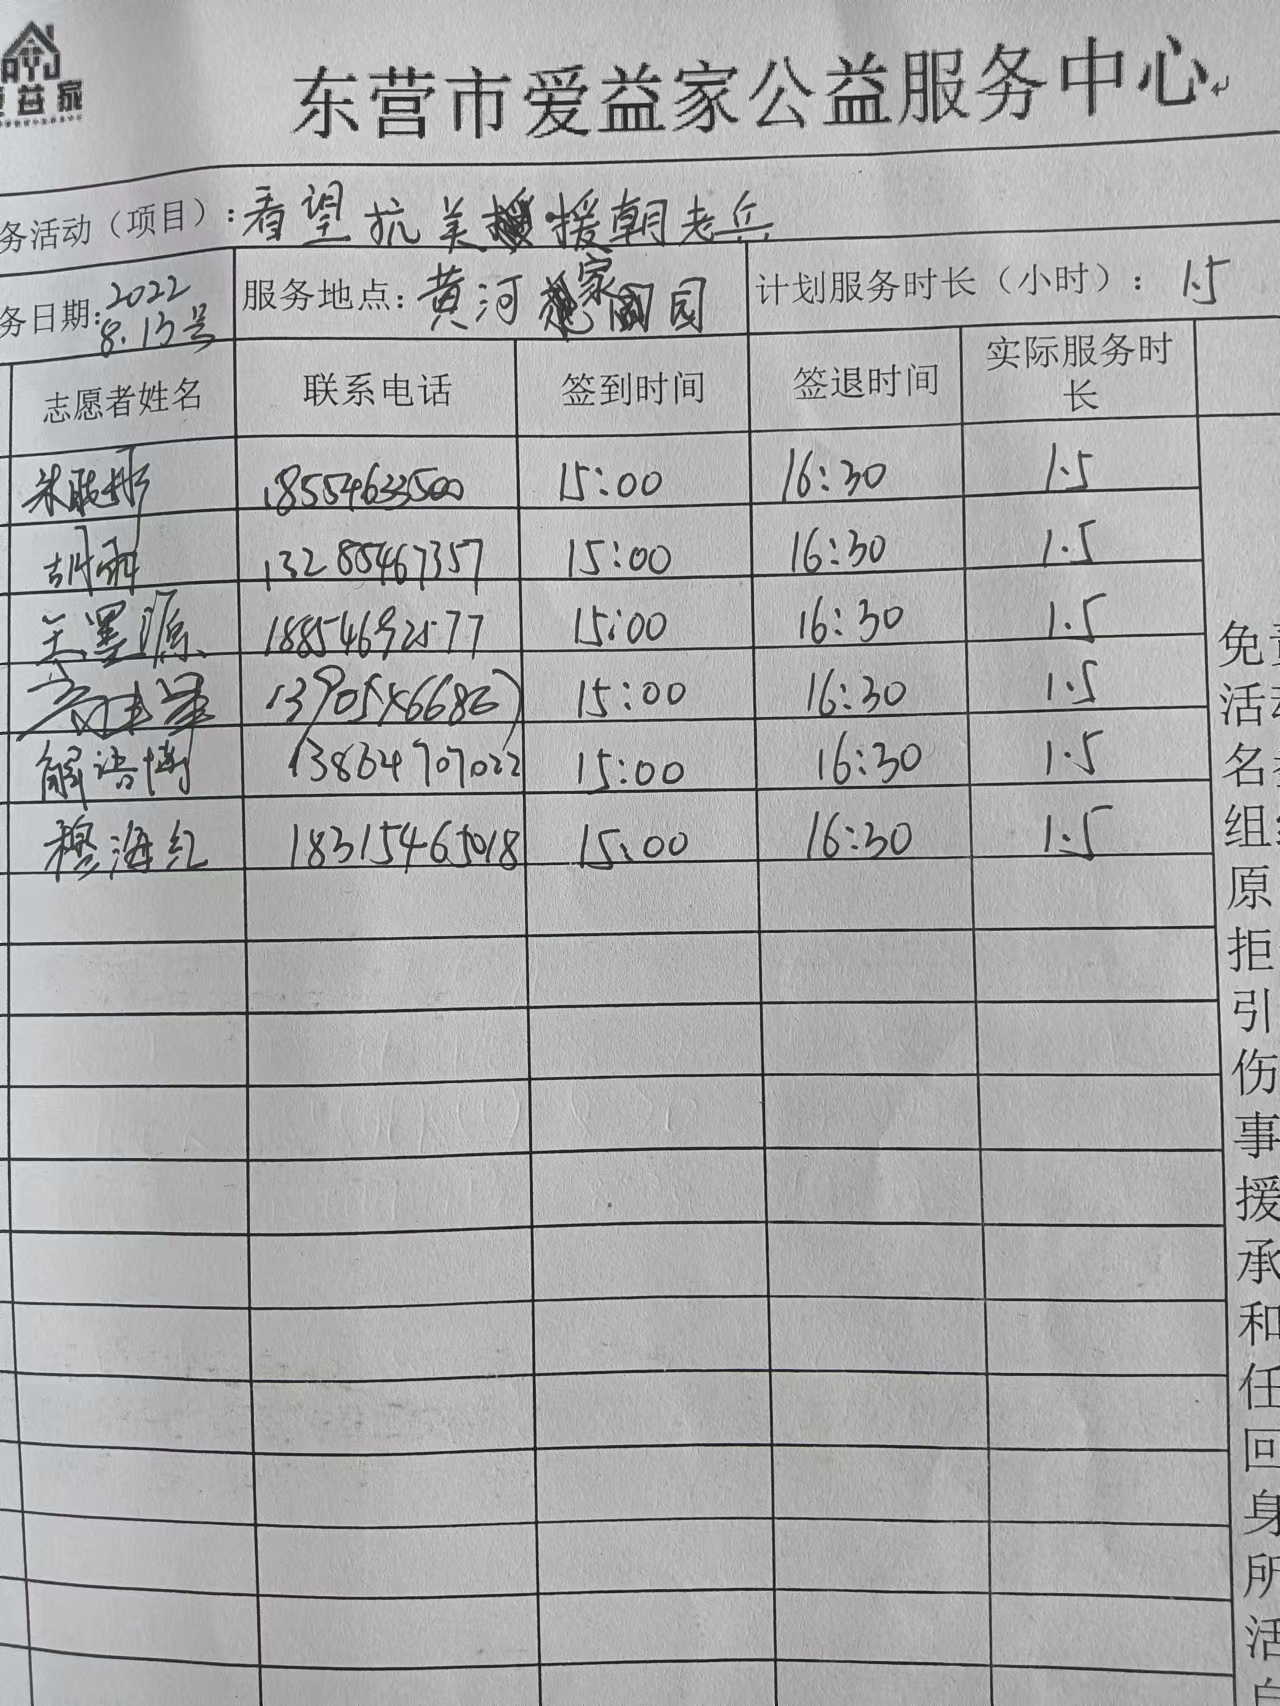 益家
东营市爱益家公益服务中心
务活动（项目）：看望抗美援朝老兵
务日期：2022 8.13号 服务地点：黄河家园 计划服务时长（小时）：1.5
志愿者姓名 联系电话 签到时间 签退时间 实际服务时长
18554633500 15:00 16:30 1.5
13285467357 15:00 16:30 1.5
王墨源 18854692577 15:00 16:30 1.5
15:00 16:30 1.5
解语博 13864707022 15:00 16:30 1.5
穆海红 18315465018 15:00 16:30 1.5
免责
活动
名参
组织
原
拒
引
伤
事
援
承
和
任
回
身
所
活
自